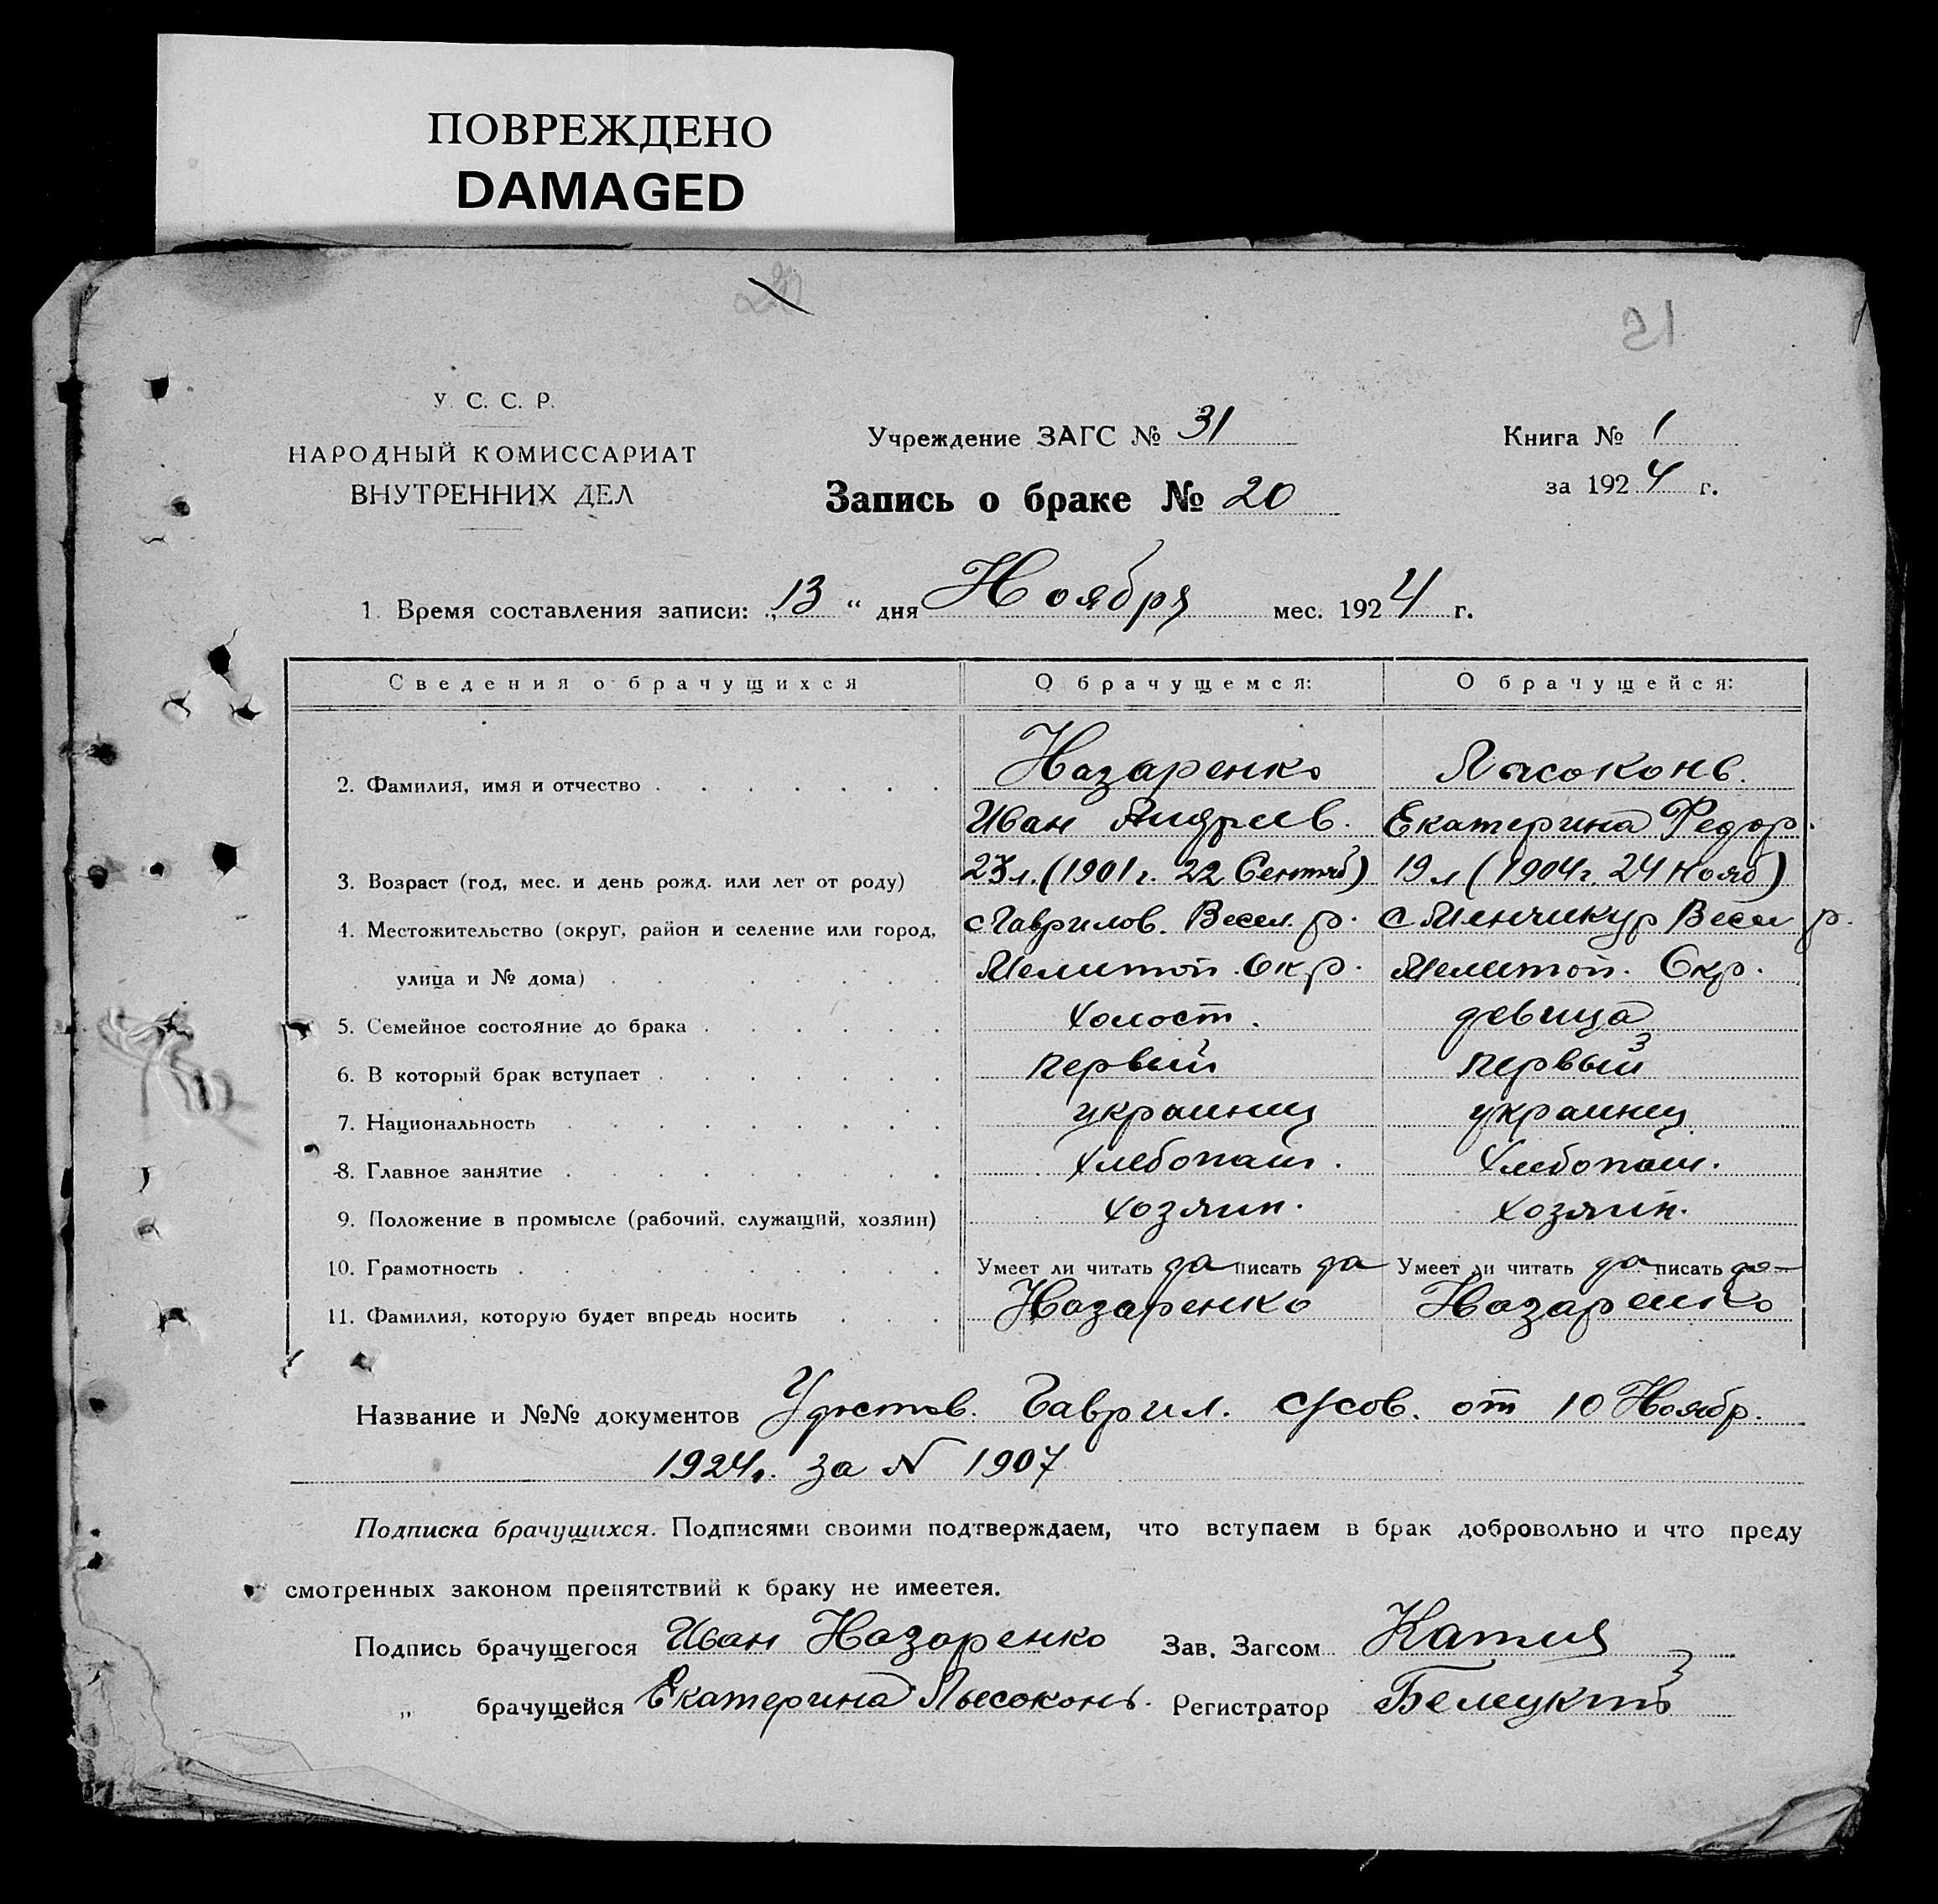 ПОВРЕЖДЕНО
DAMAGED
21
У. С. С. Р.
НАРОДНЫЙ КОМИССАРИАТ
ВНУТРЕННИХ ДЕЛ
Учреждение ЗАГС № 31
Книга № 1
Запись о браке № 20
за 1924 г.
1. Время составления записи: „13“ дня Ноября мес. 1924 г.
Сведения о брачущихся О брачущемся: О брачущейся:
2. Фамилия, имя и отчество Назаренко Лысоконь.
Иван Андреев. Екатерина Федор.
3. Возраст (год, мес. и день рожд. или лет от роду) 23 л. (1901 г. 22 Сентяб) 19 л (1904 г. 24 Нояб)
4. Местожительство (округ, район и селение или город, с Гаврилов. Весел. р. с Менчикур Весел р.
улица и № дома) Мелитоп. Окр. Мелитоп. Окр.
5. Семейное состояние до брака холост. девица
6. В который брак вступает первый первый
7. Национальность украинец украинец
8. Главное занятие хлебопаш. хлебопаш.
9. Положение в промысле (рабочий, служащий, хозяин) хозяин. хозяин.
10. Грамотность Умеет ли читать да писать да Умеет ли читать да писать да
11. Фамилия, которую будет впредь носить Назаренко Назаренко
Название и №№ документов Удостов. Гаврил. с/сов. от 10 Ноябр.
1924 г. за N 1907
Подписка брачущихся. Подписями своими подтверждаем, что вступаем в брак добровольно и что преду
смотренных законом препятствий к браку не имеетея.
Подпись брачущегося Иван Назаренко Зав. Загсом
„ брачущейся Екатерина Лысоконь. Регистратор Белецкий